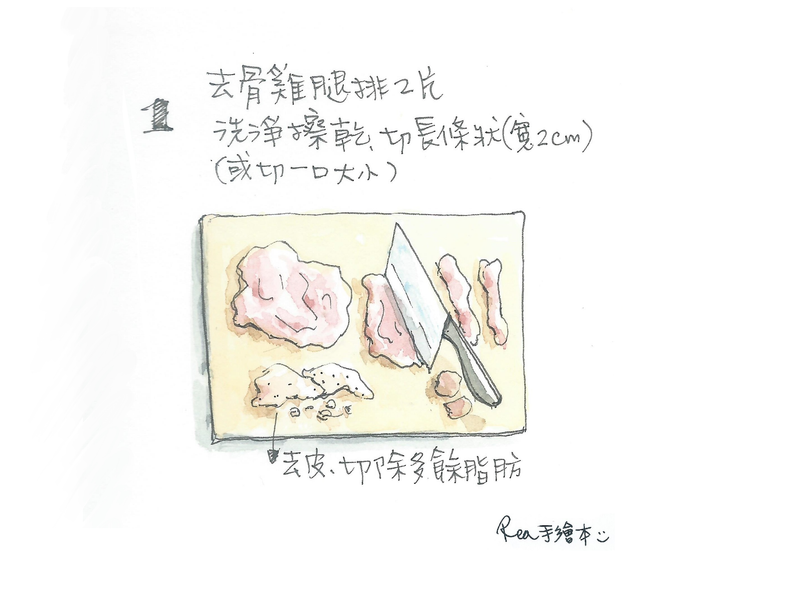 1
去骨雞腿排2片
洗淨擦乾、切長條狀(寬2cm)
(或切一口大小)
去皮、切除多餘脂肪
Rea手繪本